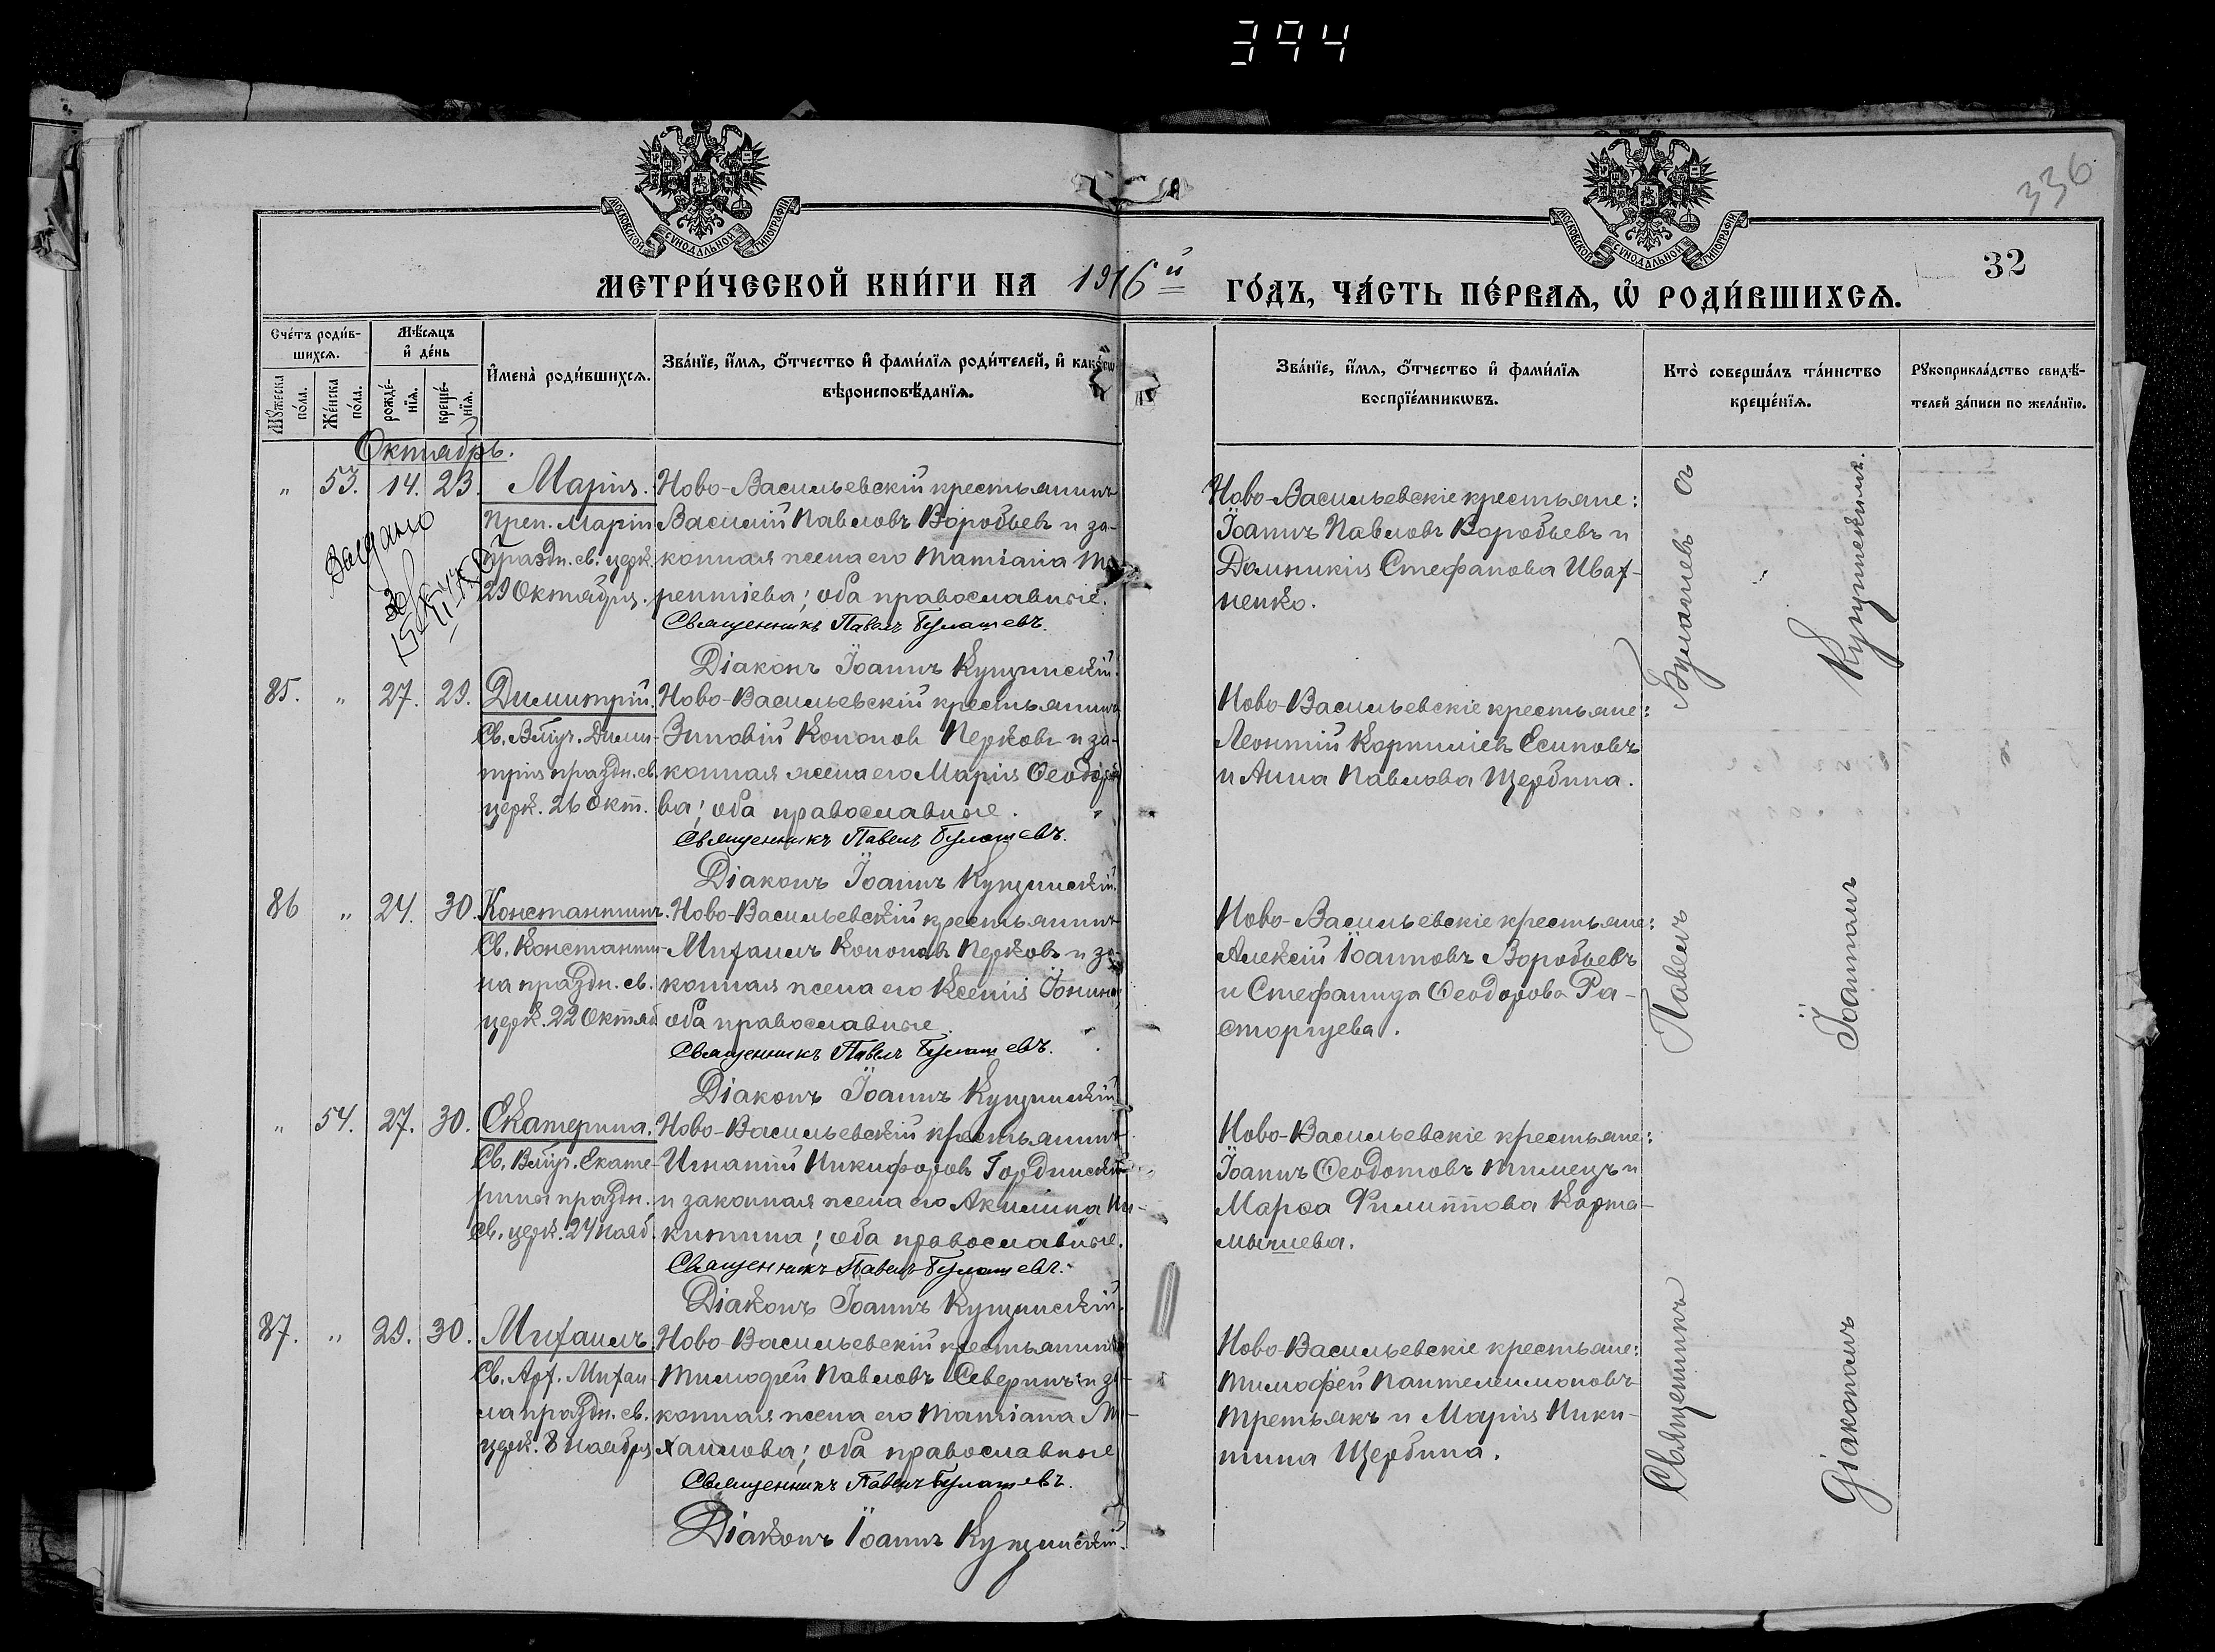 394
336
32
МОСКОВСКОЙ СѴНОДАЛЬНОЙ ТИПОГРАФІИ
МОСКОВСКОЙ СѴНОДАЛЬНОЙ ТИПОГРАФІИ
МЕТРИ́ЧЕСКОЙ КНИ́ГИ НА 1916й ГО́ДЪ, ЧА́СТЬ ПЕ́РВАЯ, Ѽ РОДИ́ВШИХСЯ.
Сче́тъ роди́в-
шихся.
Мѣ́сяцъ
и҆ де́нь
Мꙋ́жеска
по́ла.
Же́нска
по́ла.
рожде́-
нїя.
креще́-
нїя.
И҆мена̀ роди́вшихся.
Зва́нїе, и҆́мя, ѻ҆́тчество и҆ фами́лїя роди́телей, и҆ како́гѡ
вѣроисповѣ́данїя.
Зва́нїе, и҆́мя, ѻ҆́тчество и҆ фами́лїя
воспрїе́мникѡвъ.
Кто̀ соверша́лъ та́инство
креще́нїя.
Рꙋкоприкла́дство свидѣ́-
телей за́писи по жела́нїю.
Октябрь.
" 53. 14. 23.
Выдано
Марія.
Преп. Маріи
праздн. св. церк.
29 Октября.
Ново-Васильевскій крестьянинъ
Василій Павловъ Воробьевъ и за-
конная жена его Татіана Те-
рентіева; оба православные.
Священникъ Павелъ Булашевъ.
Діаконъ Іоаннъ Кущинскій.
Ново-Васильевскіе крестьяне:
Іоаннъ Павловъ Воробьевъ и
Домникія Стефанова Ивах-
ненко.
85. " 27. 29.
Димитрій.
Св. Влмуч. Дими-
трія праздн. св.
церк. 26 Окт.
Ново-Васильевскій крестьянинъ
Зиновій Кононовъ Перковъ и за-
конная жена его Марія Ѳеодоро-
ва; оба православные.
Священникъ Павелъ Булашевъ.
Діаконъ Іоаннъ Кущинскій.
Ново-Васильевскіе крестьяне:
Леонтій Корниліевъ Есиповъ
и Анна Павлова Щербина.
86 " 24. 30.
Константинъ.
Св. Константи-
на праздн. св.
церк. 22 Октяб.
Ново-Васильевскій крестьянинъ
Михаилъ Кононовъ Перковъ и за-
конная жена его Ксенія Іонина
оба православные.
Священникъ Павелъ Булашевъ.
Діаконъ Іоаннъ Кущинскій
Ново-Васильевскіе крестьяне:
Алексій Іоанновъ Воробьевъ
и Стефанида Ѳеодорова Ра-
сторгуева.
" 54. 27. 30.
Екатерина.
Св. Влмуч. Екате-
рины праздн.
св. церк. 24 Нояб.
Ново-Васильевскій крестьянинъ
Игнатій Никифоровъ Гординскій
и законная жена его Акилина Ни-
китина; оба православные.
Священникъ Павелъ Булашевъ.
Діаконъ Іоаннъ Кущинскій.
Ново-Васильевскіе крестьяне:
Іоаннъ Ѳеодотовъ Тимецъ и
Марѳа Филиппова Карта-
мышева.
87. " 29. 30.
Михаилъ.
Св. Арх. Михаи-
ла праздн. св.
церк. 8 Ноября
Ново-Васильевскій крестьянинъ
Тимофей Павловъ Северинъ и за-
конная жена его Татіана Ми-
хаилова; оба православные
Священникъ Павелъ Булашевъ.
Діаконъ Іоаннъ Кущинскій.
Ново-Васильевскіе крестьяне:
Тимофей Пантелеимоновъ
Третьякъ и Марія Ники-
тина Щербина.
Священникъ Павелъ Булашевъ съ
Діакономъ Іоанномъ Кущинскимъ.